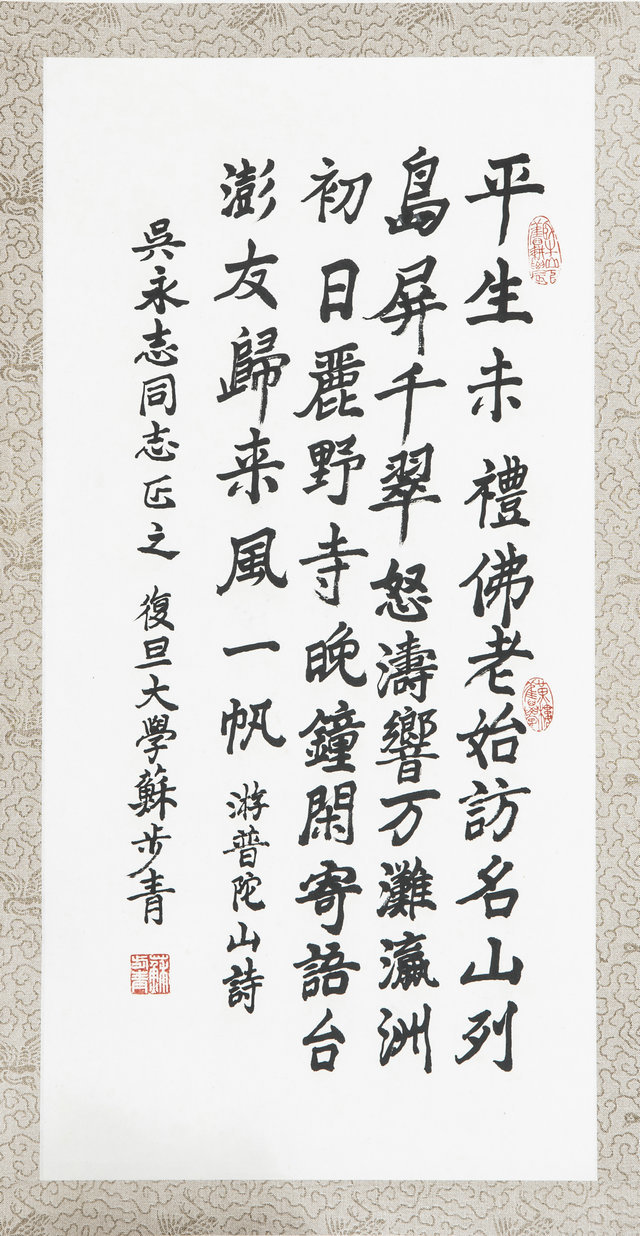 平生未禮佛老始訪名山列
島屏千翠怒濤響万灘瀛洲
初日麗野寺晚鐘閑寄語台
澎友歸来風一帆 游普陀山詩
吳永志同志正之 復旦大學蘇步青
蘇步青